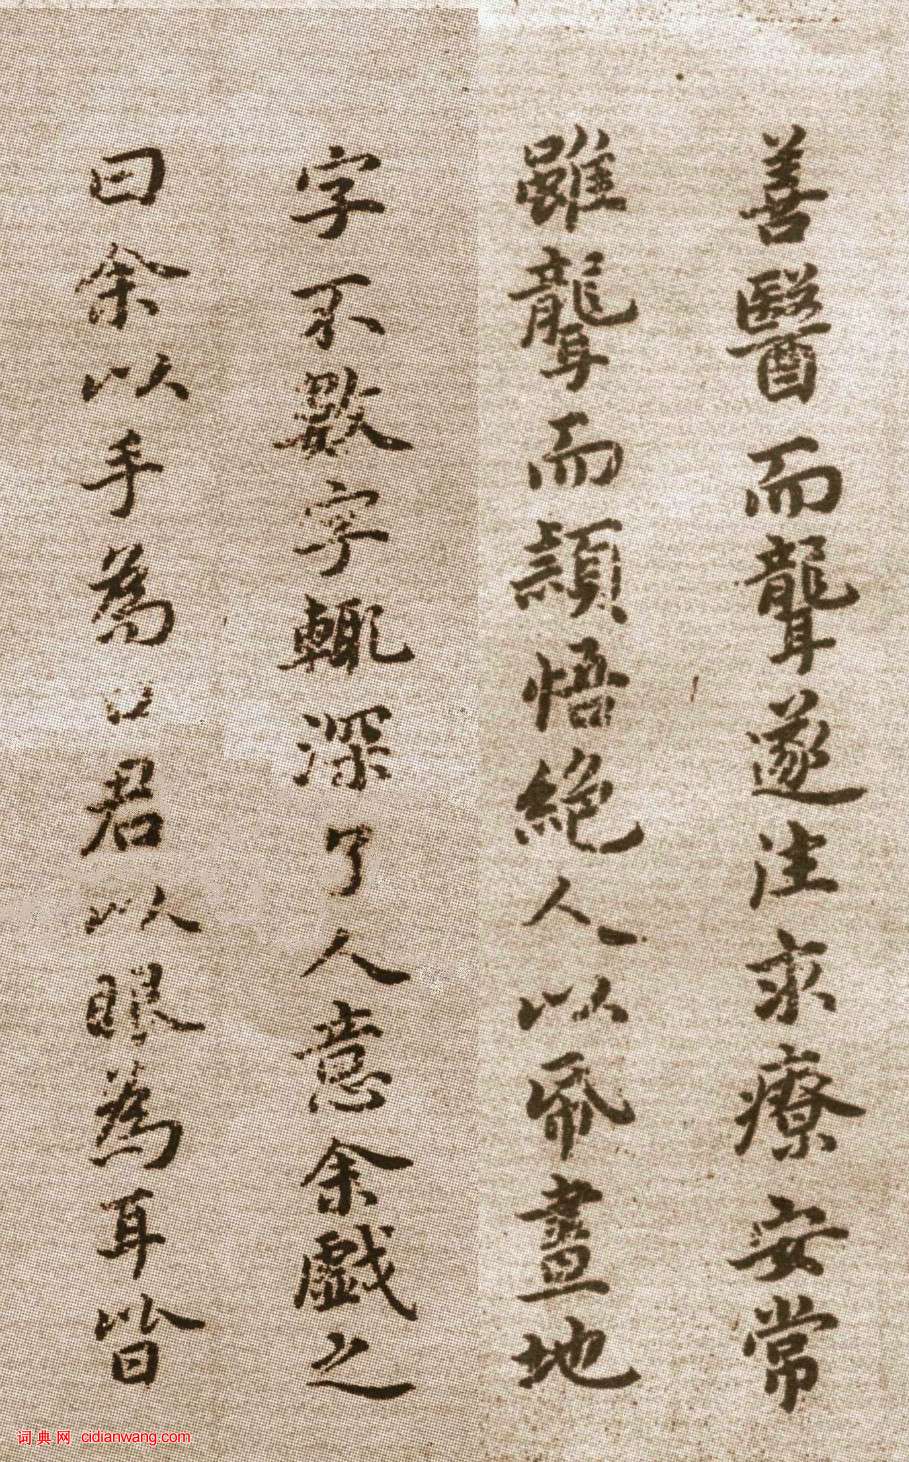 善醫而聾遂往求療安常
雖聾而穎悟絕人以帋畫地
字不數字輒深了人意余戲之
曰余以手為口君以眼為耳皆
词典网 cidianwang.com